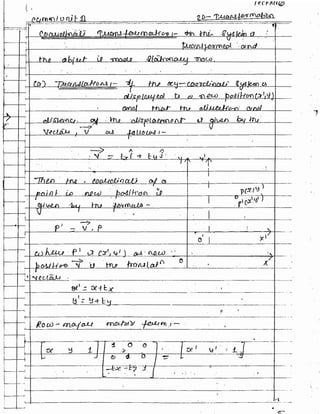 2D - Transformation
Coordinate Transformations :- In this System a
transformed and
the object is made stationary now.
(a) Translation :- If the xy-coordinate System is
displaced to a new position (x',y')
and that the direction and
distance of the displacement is given by the
Vector, V as follows :-
V = txi + tyj
y y'
Then the coordinate of a
point in new position is
given by the formula -
P(x,y)
P'(x',y')
P' = V . P
o' x'
o x
where P' is (x',y') as new
position V is the translatn
vector
x' = x + tx
y' = y + ty
Row-major matrix form :-
[x y 1] [1 0 0
0 1 0
-tx -ty 1] = [x' y' 1]